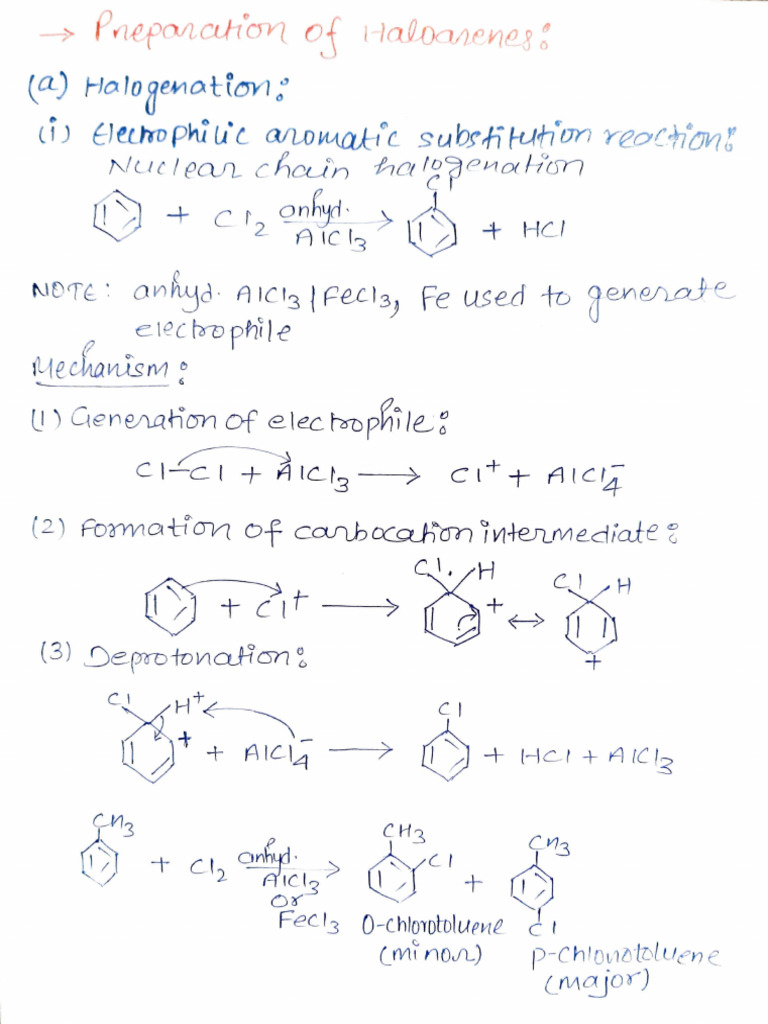 → Preparation of Haloarenes:
(a) Halogenation:
(i) Electrophilic aromatic substitution reaction:
Nuclear chain halogenation
Cl
+ Cl2 anhyd. AlCl3 → + HCl
NOTE: anhyd. AlCl3 / FeCl3, Fe used to generate
electrophile
Mechanism:
(1) Generation of electrophile:
Cl–Cl + AlCl3 → Cl+ + AlCl4-
(2) Formation of carbocation intermediate:
Cl. H Cl H
+ Cl+ → + ↔ +
(3) Deprotonation:
Cl H+ Cl
+ + AlCl4- → + HCl + AlCl3
CH3 CH3 CH3
+ Cl2 anhyd. AlCl3 or FeCl3 → Cl + Cl
O-chlorotoluene
(minor)
p-chlorotoluene
(major)